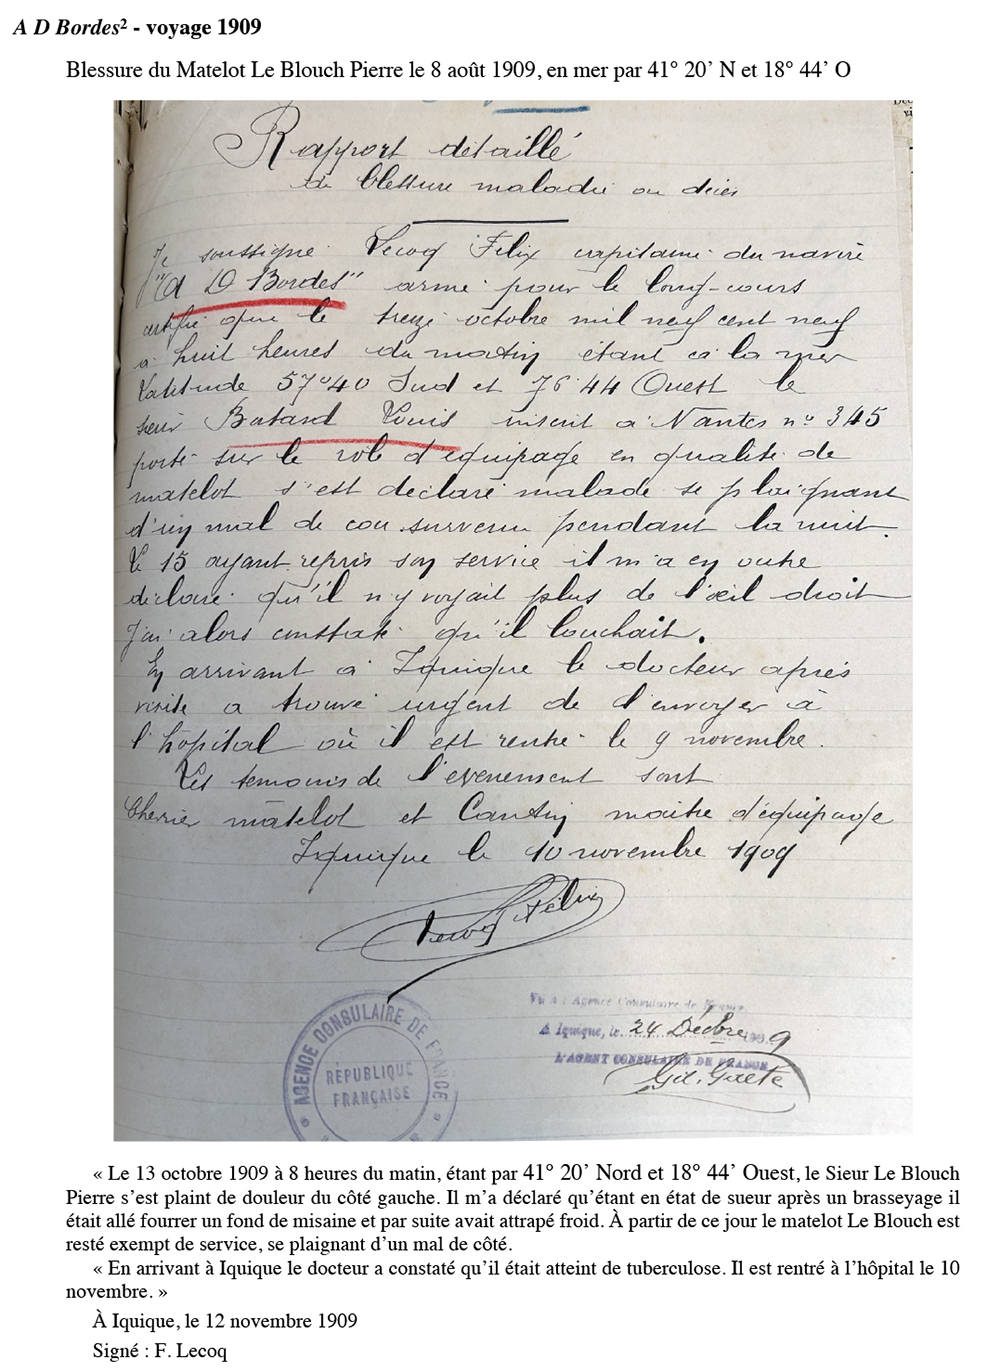 A D Bordes² - voyage 1909
Blessure du Matelot Le Blouch Pierre le 8 août 1909, en mer par 41° 20’ N et 18° 44’ O
Rapport détaillé
de blessure maladie ou décès
Je soussigné Lecoq Félix capitaine du navire
"A D Bordes" armé pour le long-cours
certifie que le treize octobre mil neuf cent neuf
à huit heures du matin étant à la mer
Latitude 57°40 Sud et 76°44 Ouest le
sieur Batard Louis inscrit à Nantes n° 345
porté sur le rôle d'équipage en qualité de
matelot s'est déclaré malade se plaignant
d'un mal de cou survenu pendant la nuit.
Le 15 ayant repris son service il m'a en outre
déclaré qu'il n'y voyait plus de l'œil droit
J'ai alors constaté qu'il louchait.
En arrivant à Iquique le docteur après
visite a trouvé urgent de l'envoyer à
l'hôpital où il est rentré le 9 novembre.
Les témoins de l'évènement sont
Cherrier matelot et Cantin maître d'équipage
Iquique le 10 novembre 1909
Lecoq Félix
AGENCE CONSULAIRE DE FRANCE
RÉPUBLIQUE
FRANÇAISE
Vu à l'Agence Consulaire de France
A Iquique, le 24 Décbre 1909
L'AGENT CONSULAIRE DE FRANCE
« Le 13 octobre 1909 à 8 heures du matin, étant par 41° 20’ Nord et 18° 44’ Ouest, le Sieur Le Blouch
Pierre s’est plaint de douleur du côté gauche. Il m’a déclaré qu’étant en état de sueur après un brasseyage il
était allé fourrer un fond de misaine et par suite avait attrapé froid. À partir de ce jour le matelot Le Blouch est
resté exempt de service, se plaignant d’un mal de côté.
« En arrivant à Iquique le docteur a constaté qu’il était atteint de tuberculose. Il est rentré à l’hôpital le 10
novembre. »
À Iquique, le 12 novembre 1909
Signé : F. Lecoq